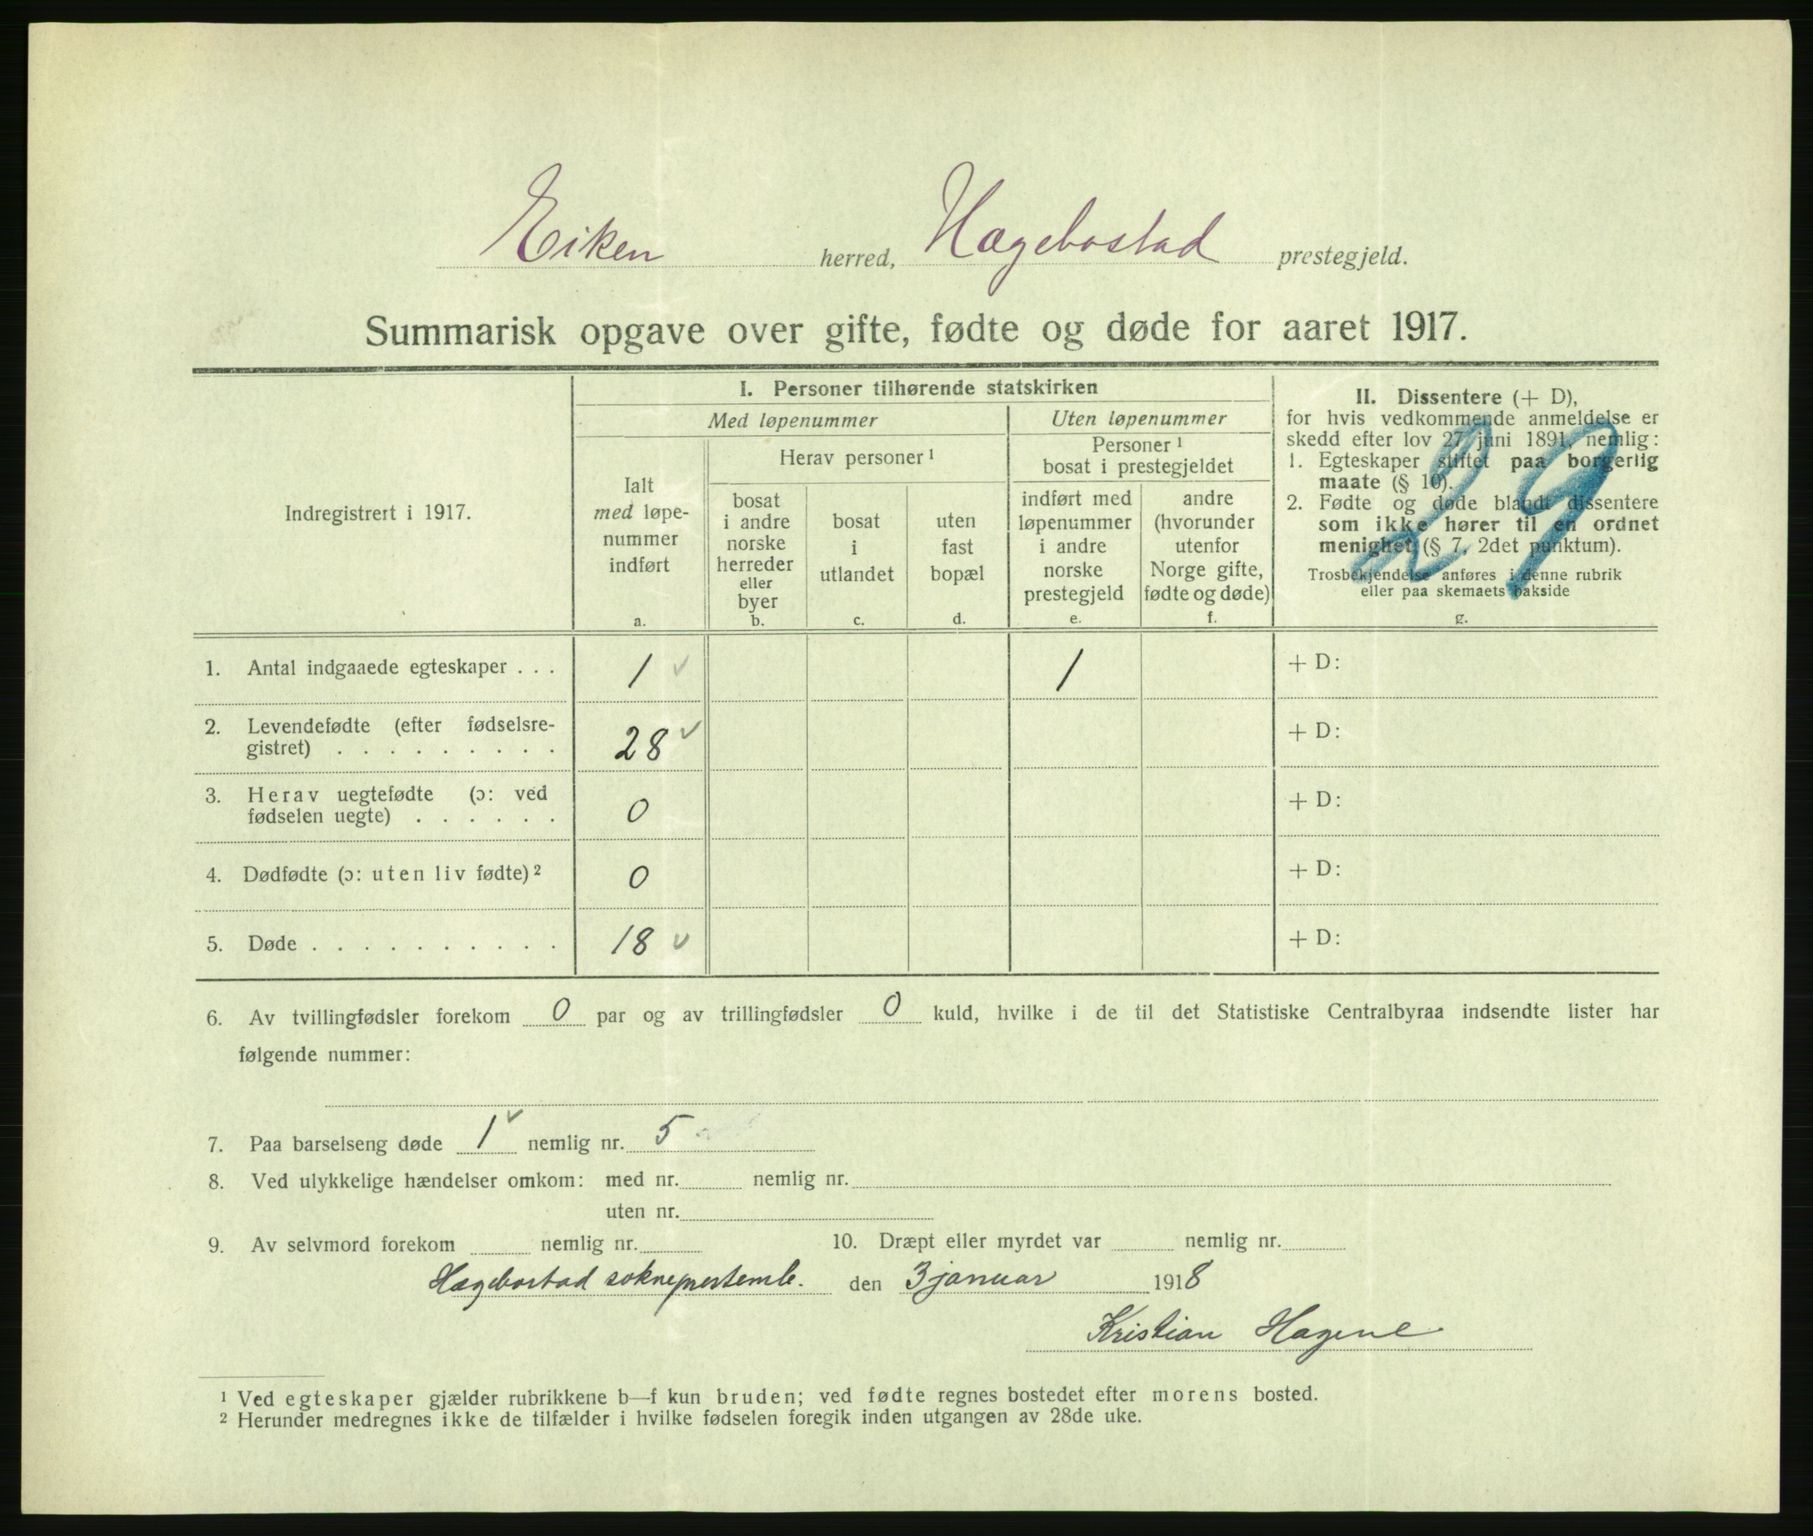 Eiken herred, Hægebostad prestegjeld.
Summarisk opgave over gifte, fødte og døde for aaret 1917.
Indregistrert i 1917.
I. Personer tilhørende statskirken
Med løpenummer
Uten løpenummer
Ialt
med løpe-
nummer
indført
a.
Herav personer ¹
bosat
i andre
norske
herreder
eller
byer
b.
bosat
i
utlandet
c.
uten
fast
bopæl
d.
Personer ¹
bosat i prestegjeldet
indført med
løpenummer
i andre
norske
prestegjeld
e.
andre
(hvorunder
utenfor
Norge gifte,
fødte og døde)
f.
II. Dissentere (+ D),
for hvis vedkommende anmeldelse er
skedd efter lov 27 juni 1891, nemlig:
1. Egteskaper stiftet paa borgerlig
maate (§ 10).
2. Fødte og døde blandt dissentere
som ikke hører til en ordnet
menighet (§ 7, 2det punktum).
Trosbekjendelse anføres i denne rubrik
eller paa skemaets bakside
g.
29
1. Antal indgaaede egteskaper . . . 1 ✓ 1 + D:
2. Levendefødte (efter fødselsre-
gistret) . . . . . . . . . 28 ✓ + D:
3. Herav uegtefødte (ɔ: ved
fødselen uegte) . . . . . . 0 + D:
4. Dødfødte (ɔ: uten liv fødte) ² 0 + D:
5. Døde . . . . . . . . . . 18 ✓ + D:
6. Av tvillingfødsler forekom 0 par og av trillingfødsler 0 kuld, hvilke i de til det Statistiske Centralbyraa indsendte lister har
følgende nummer:
7. Paa barselseng døde 1 ✓ nemlig nr. 5
8. Ved ulykkelige hændelser omkom: med nr. nemlig nr.
uten nr.
9. Av selvmord forekom nemlig nr. 10. Dræpt eller myrdet var nemlig nr.
Hægebostad sokneprestemb. den 3 januar 1918
Kristian Hagene
¹ Ved egteskaper gjælder rubrikkene b—f kun bruden; ved fødte regnes bostedet efter morens bosted.
² Herunder medregnes ikke de tilfælder i hvilke fødselen foregik inden utgangen av 28de uke.